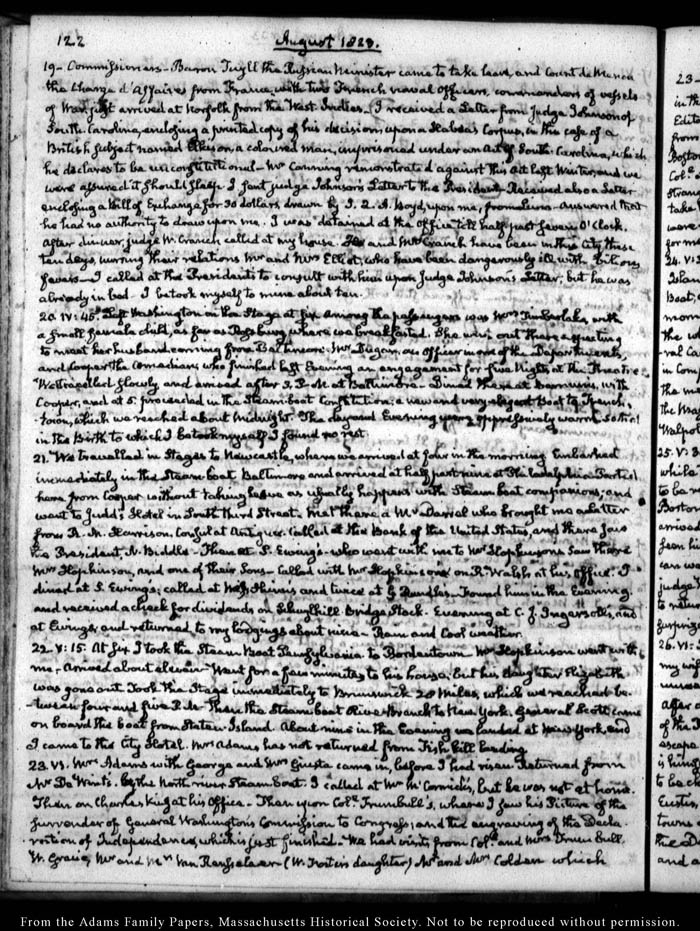 122 August 1823.
19 - Commissioners - Baron Tuyll the Russian Minister came to take leave, and Count de Menou
the Chargé d'Affaires from France, with two French naval Officers, commanders of vessels
of War just arrived at Norfolk from the West Indies. I received a Letter from Judge Johnson of
South Carolina, enclosing a printed copy of his decision, upon a Habeas Corpus, in the case of a
British Subject named Elkison a coloured man, imprisoned under an Act of South-Carolina, which
he declares to be unconstitutional - Mr Canning remonstrated against this Act last Winter, and we
were assured it should sleep. I sent judge Johnson's Letter to the President. Received also a Letter
enclosing a Bill of Exchange for 30 dollars drawn by Boyd, upon me, from Answered that
he had no authority to draw upon me. I was detained at the Office till half past seven O'Clock.
After dinner, judge W. Cranch called at my house. He and Mrs Cranch have been in this City these
ten days, nursing their relations Mr and Mrs Elliot, who have been dangerously ill with bilious
fevers - I called at the Presidents to consult with him upon Judge Johnson's Letter; but he was
already in bed. I betook myself to mine about ten.
20. IV:45. Left Washington in the Stage at six. Among the passengers was Mrs Timberlake, with
a small female child, as far as where we breakfasted. She went out there expecting
to meet her husband coming from Baltimore. Mr Dugan, an officer in one of the Departments,
and Cooper the Comedian, who finished last Evening an engagement for five Nights, at the Theatre
We travelled slowly and arrived after 3. P.M. at Baltimore - Dined there at Barnum's, with
Cooper, and at 5. proceeded in the Steam-boat Constitution, a new and very elegant Boat to French-
town, which we reached about midnight. The day and Evening were oppressively warm so that
in the Birth to which I betook myself I found no rest.
21. We travelled in Stages to Newcastle, where we arrived at four in the morning. Embarked
immediately in the Steam boat Baltimore and arrived at half past nine at Philadelphia. Parted
here from Cooper without taking leave as usually happens with Steam boat companions; and
went to Judd's Hotel in South third Street. Met there a Mr Darrel who brought me a Letter
from R. M. Harrison, Consul at Antigua. Called at the Bank of the United States, and there saw
the President, N. Biddle - Then at S. Ewing's - who went with me to Mr Hopkinson's. Saw there
Mrs Hopkinson, and one of their Sons - Called with Mr Hopkinson on R. Walsh at his Office. I
dined at S. Ewing's; called at and twice at G Rundle's - Found him in the Evening
and received a check for dividends on Schuylkill Bridge Stock. Evening at C. J. Ingersoll's, and
at Ewing's and returned to my lodgings about nine - Rain and Cool weather.
22. V:15. At six I took the Steam Boat Pennsylvania to Bordentown. Mr Hopkinson went with
me - Arrived about eleven - Went for a few minutes to his house, but his daughter Elizabeth
was gone out. Took the Stage immediately to Brunswick 28 Miles, which we reached be-
-tween four and five P.M. Then the Steam boat Olive Branch to New York. General Scott came
on board the boat from Staten Island. About nine in the Evening we landed at New York, and
I came to the City Hotel. Mrs Adams has not returned from Fishkill Landing
23. VI. Mrs Adams with George and Mrs came in, before I had risen. Returned from
Mr De Wint's by the North river Steam boat. I called at Mr McCormick's, but he was not at home.
Then on Charles King at his Office - Then upon Coll Trumbull's, where I saw his Picture of the
surrender of General Washington's Commission to Congress; and the engraving of the Decla-
ration of Independence, which is just finished. We had visits from Coll and Mrs Trumbull,
W. Mr and Mrs Van Rensselaer (W. daughter) Mr and Mrs Colden which
23 -
in th
Edito
from
Boston
Col.
take
were
24. V:
Islan
Boat,
morn
the w
in Com
the m
the Ma
Walpol
25. V:
while
to be
Boston
arrived
judge
to
26. VI:
my wif
After
of the
escape
to be
towns
and a
From the Adams Family Papers, Massachusetts Historical Society. Not to be reproduced without permission.